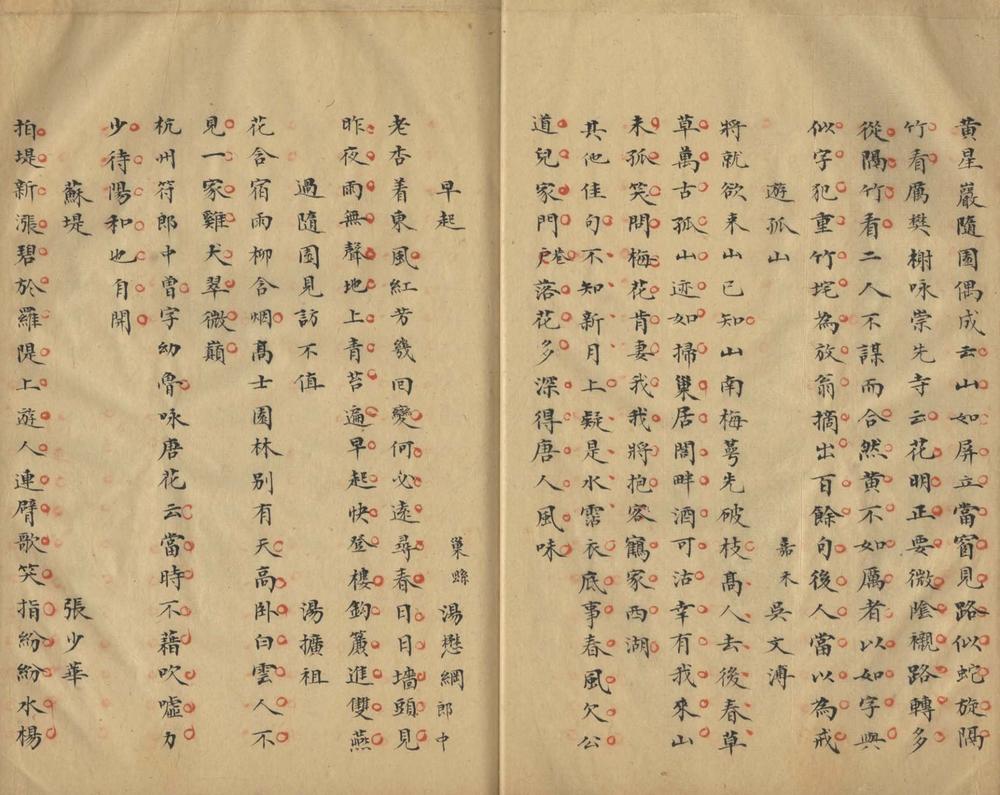 黄星巖隨園偶成云山如屏立當窗見路似蛇旋隔
竹看厲樊榭咏崇先寺云花明正要微陰襯路轉多
從隔竹看二人不謀而合然黄不如厲者以如字與
似字犯重竹垞為放翁摘出百餘句後人當以為戒
遊孤山 嘉禾 吳文溥
將就欲来山已知山南梅萼先破枝高人去後春草
草萬古孤山迹如掃巢居閣畔酒可沽幸有我來山
未孤笑問梅花肯妻我我將抱客鶴家西湖
其他佳句不知新月上疑是水霑衣底事春風欠公
道兒家門戶巷落花多深得唐人風味
早起 巢縣 湯懋綱 郎中
老杏着東風紅芳幾回變何必遠尋春日日墻頭見
昨夜雨無聲地上青苔遍早起快登樓鈎簾進雙燕
過隨園見訪不值 湯擴祖
花含宿雨柳含烟高士園林别有天高卧白雲人不
見一家雞犬翠微巔
杭州符郎中曽字幼魯咏唐花云當時不藉吹噓力
少待陽和也自開
蘇堤 張少華
拍堤新漲碧於羅隄上遊人連臂歌笑指紛紛水楊